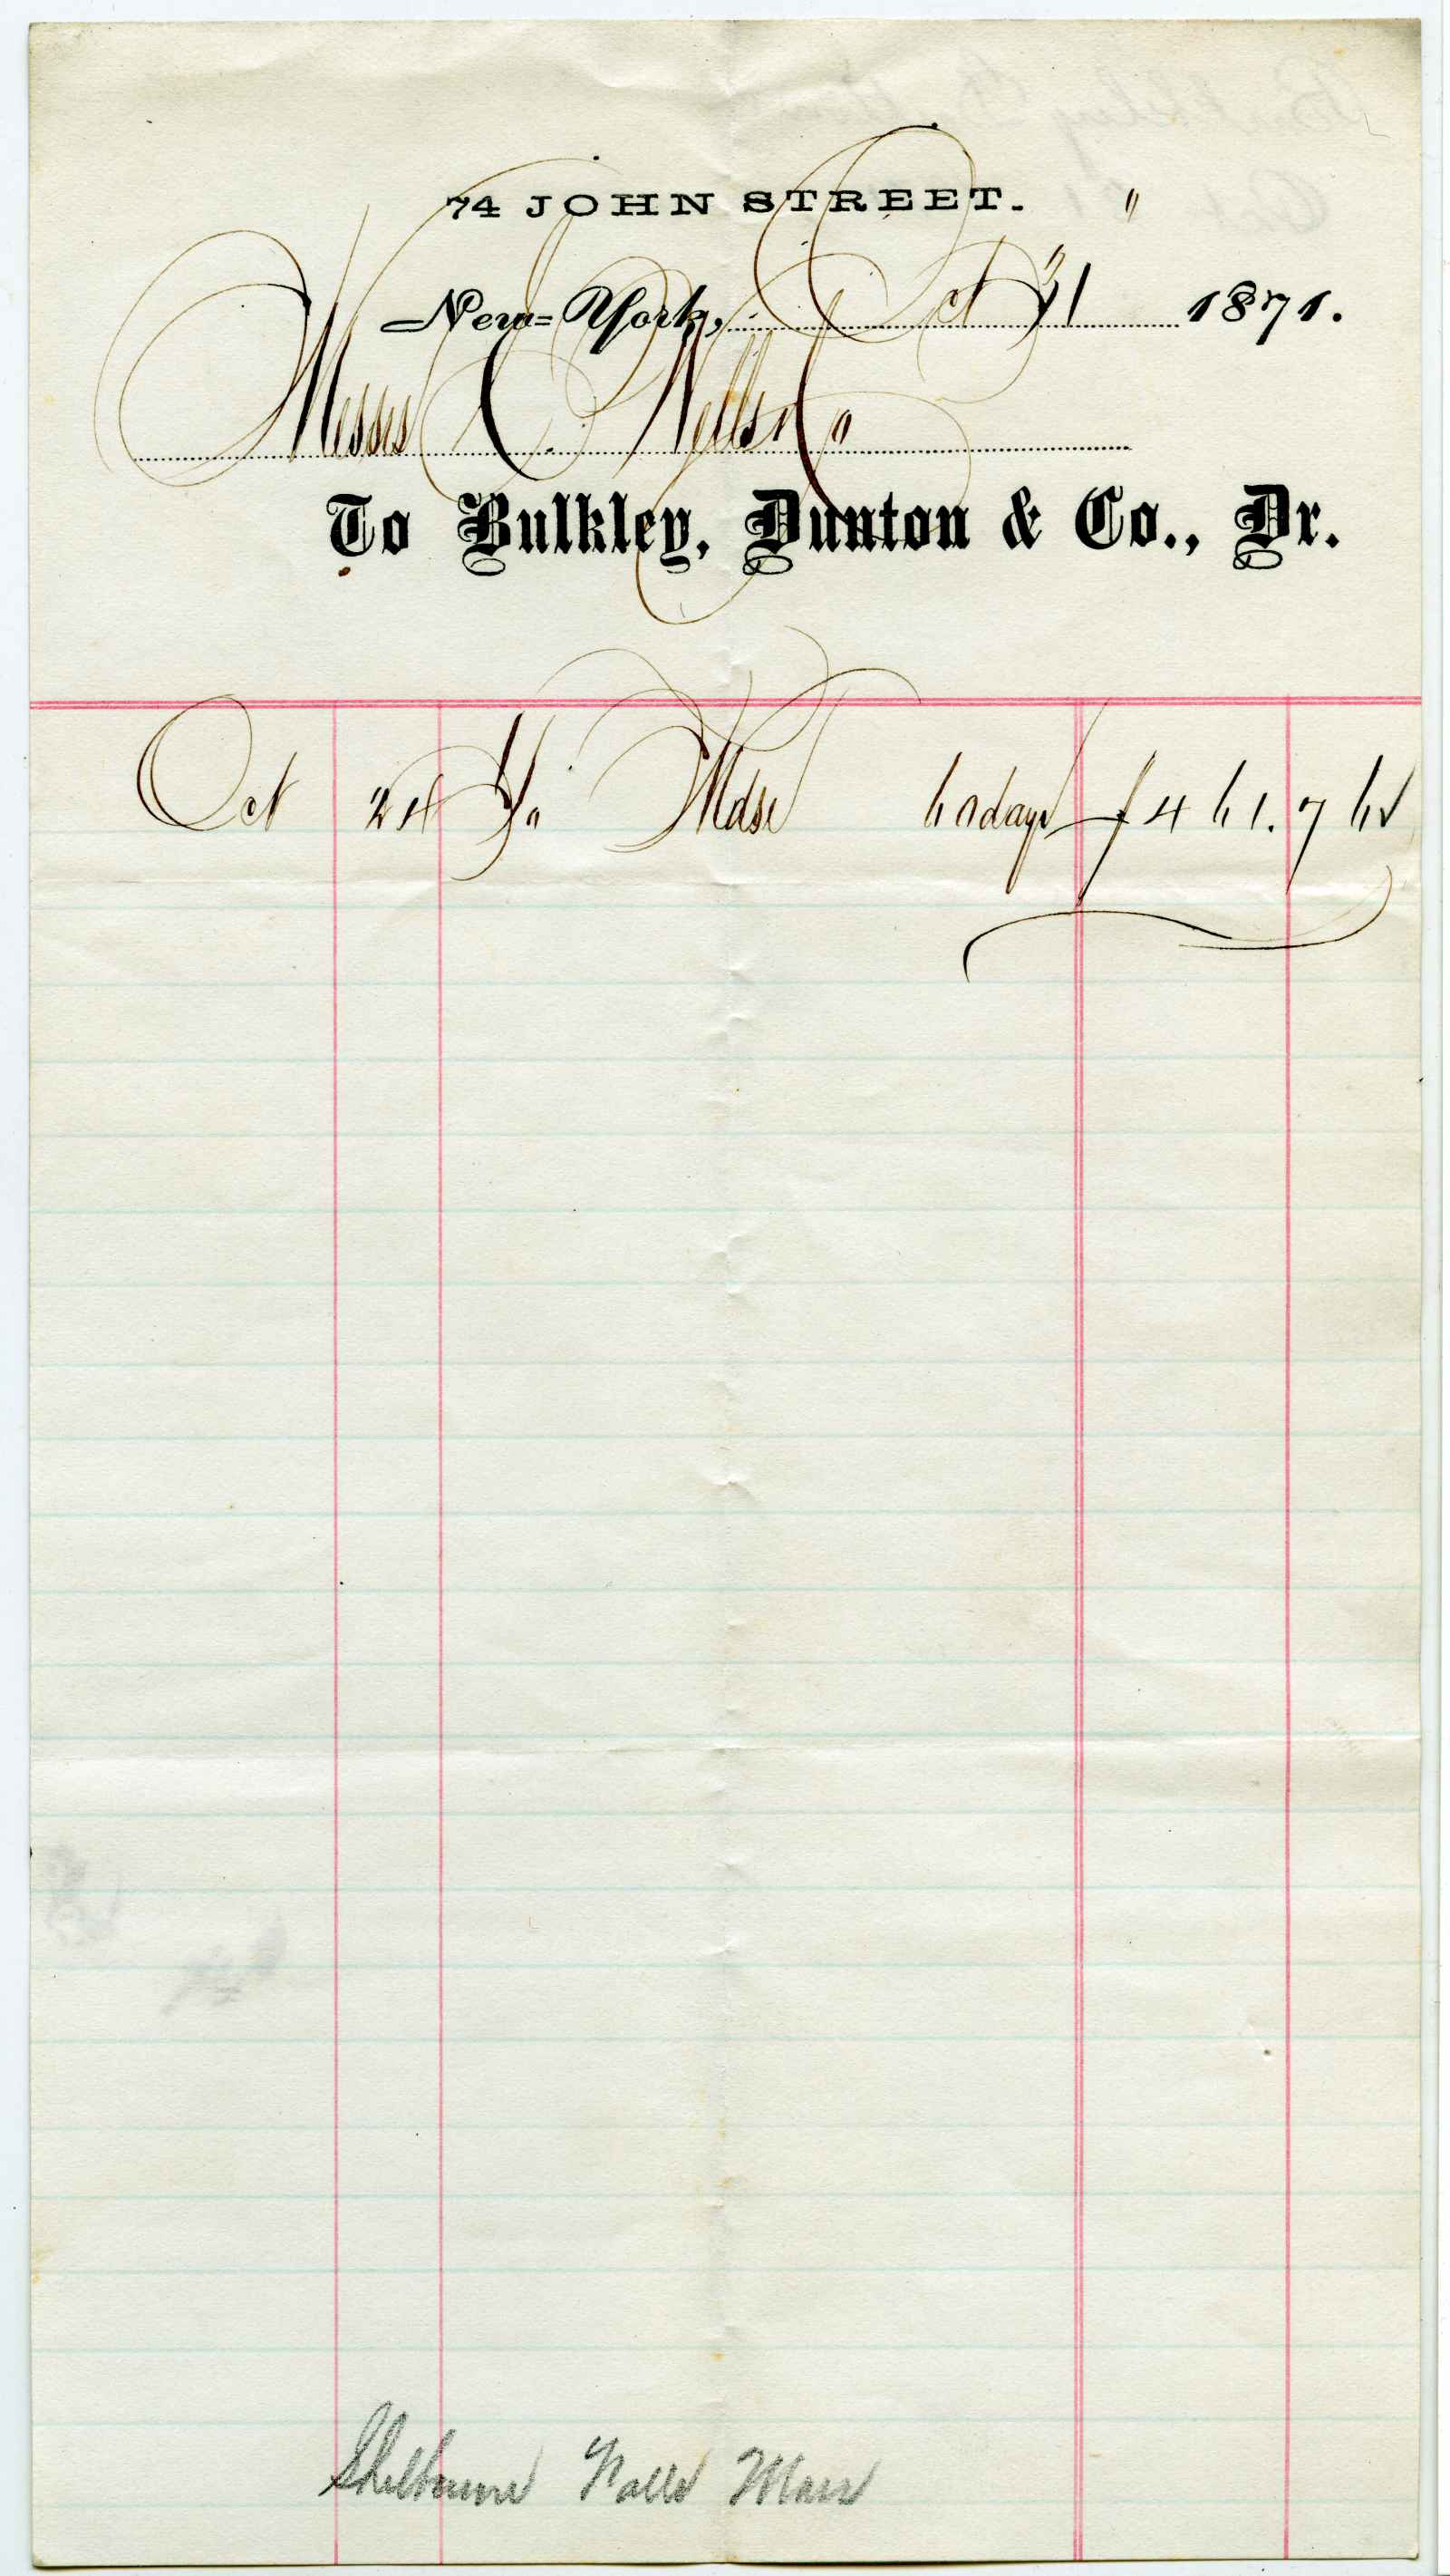 74 JOHN STREET.
New-York, Oct 31 1871.
Messrs C. Wells & Co
To Bulkley, Dunton & Co., Dr.
Oct 24 To Mdse 60 days $461.76
Shelburne Falls Mass